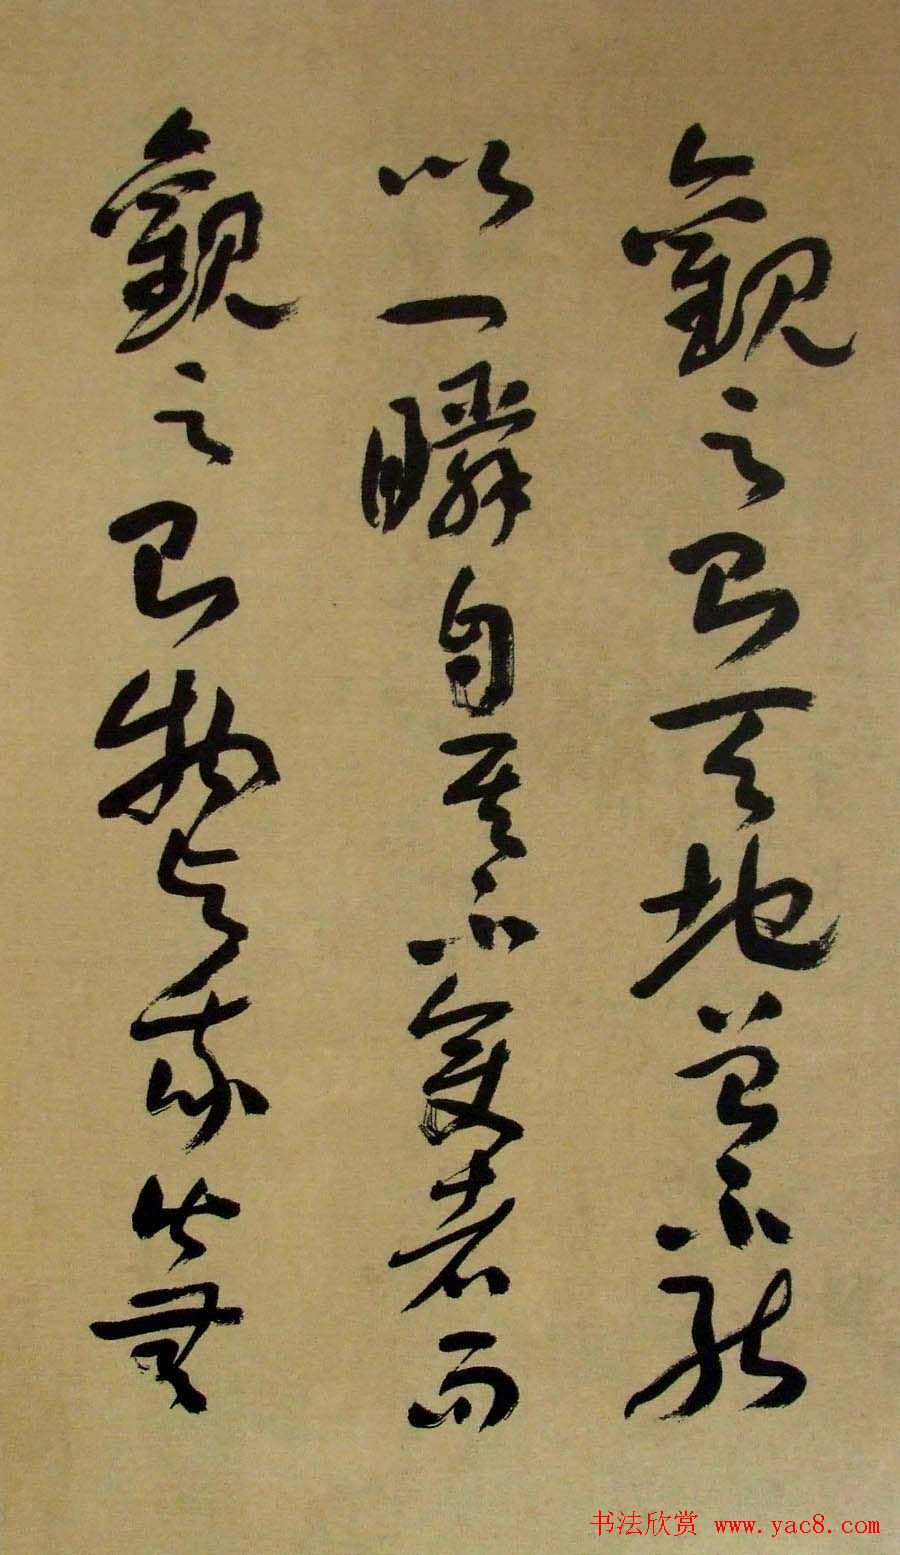 觀之則天地曾不能
以一瞬自其不變者而
觀之則物與我皆無
书法欣赏 www.yac8.com